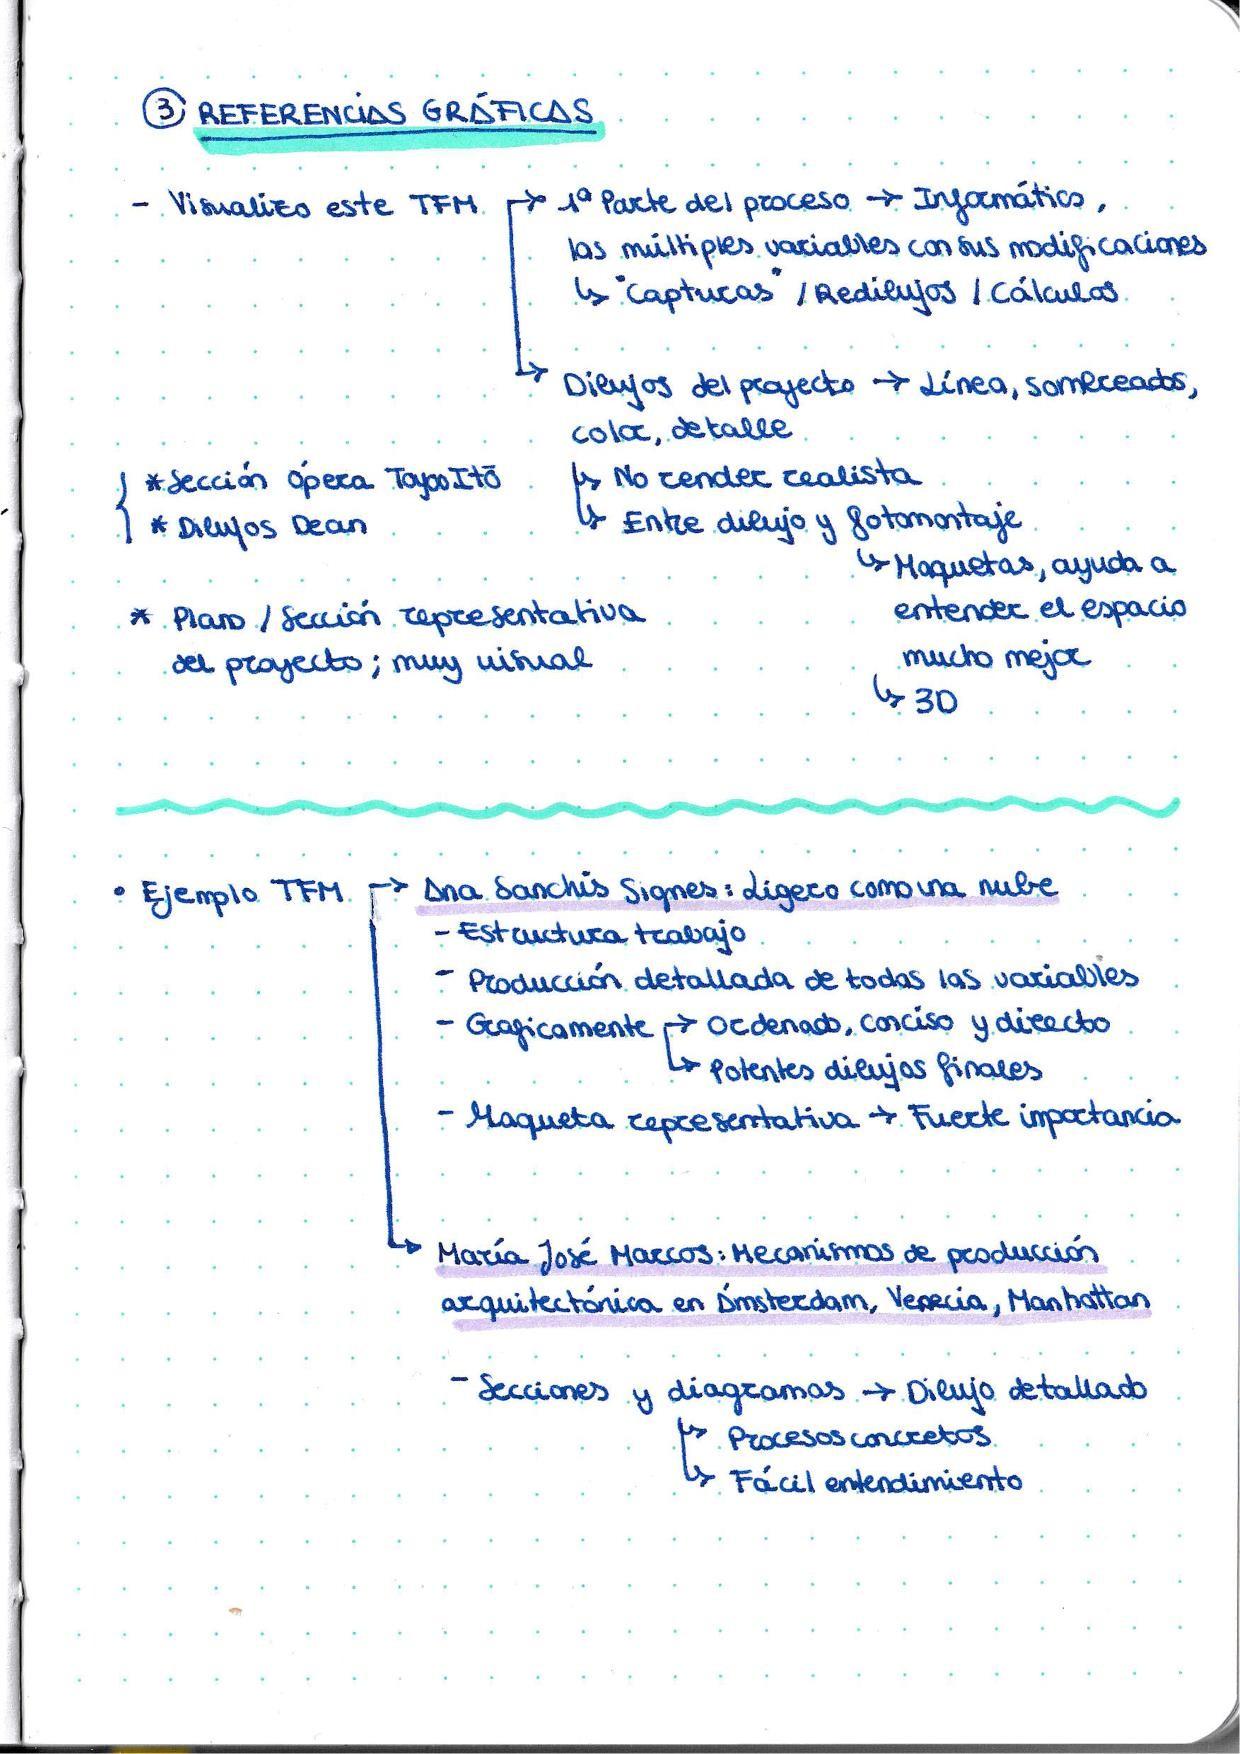 ③ REFERENCIAS GRÁFICAS
- Visualizo este TFM → 1ª Parte del proceso → Informático,
las múltiples variables con sus modificaciones
↳ "Capturas" / Redibujos / Cálculos
→ Dibujos del proyecto → Línea, sombreados,
color, detalle
* Sección Ópera Toyoo Itō
↳ No render realista
* Dibujos Dean
↳ Entre dibujo y fotomontaje
↳ Maquetas, ayuda a
entender el espacio
mucho mejor
↳ 3D
* Plano / Sección representativa
del proyecto; muy visual
• Ejemplo TFM → Ana Sanchis Signes: Ligero como una nube
- Estructura trabajo
- Producción detallada de todas las variables
- Graficamente → Ordenado, conciso y directo
↳ Potentes dibujos finales
- Maqueta representativa → Fuerte importancia
→ María José Marcos: Mecanismos de producción
arquitectónica en Ámsterdam, Venecia, Manhattan
- Secciones y diagramas → Dibujo detallado
↳ Procesos concretos
↳ Fácil entendimiento